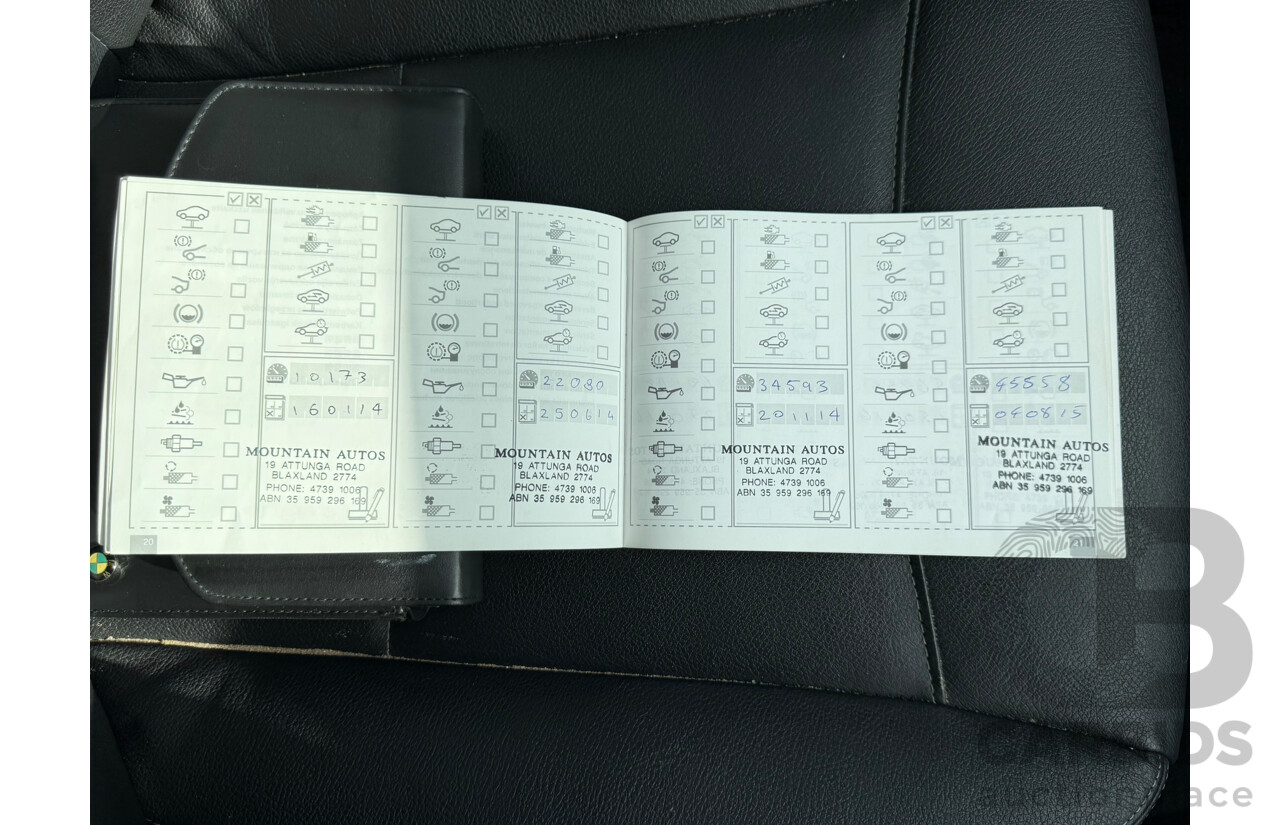 10173
160114
MOUNTAIN AUTOS
19 ATTUNGA ROAD
BLAXLAND 2774
PHONE: 4739 1006
ABN 35 959 296 169
20
22080
250614
MOUNTAIN AUTOS
19 ATTUNGA ROAD
BLAXLAND 2774
PHONE: 4739 1006
ABN 35 959 296 169
34593
201114
MOUNTAIN AUTOS
19 ATTUNGA ROAD
BLAXLAND 2774
PHONE: 4739 1006
ABN 35 959 296 169
45558
040815
MOUNTAIN AUTOS
19 ATTUNGA ROAD
BLAXLAND 2774
PHONE: 4739 1006
ABN 35 959 296 169
21